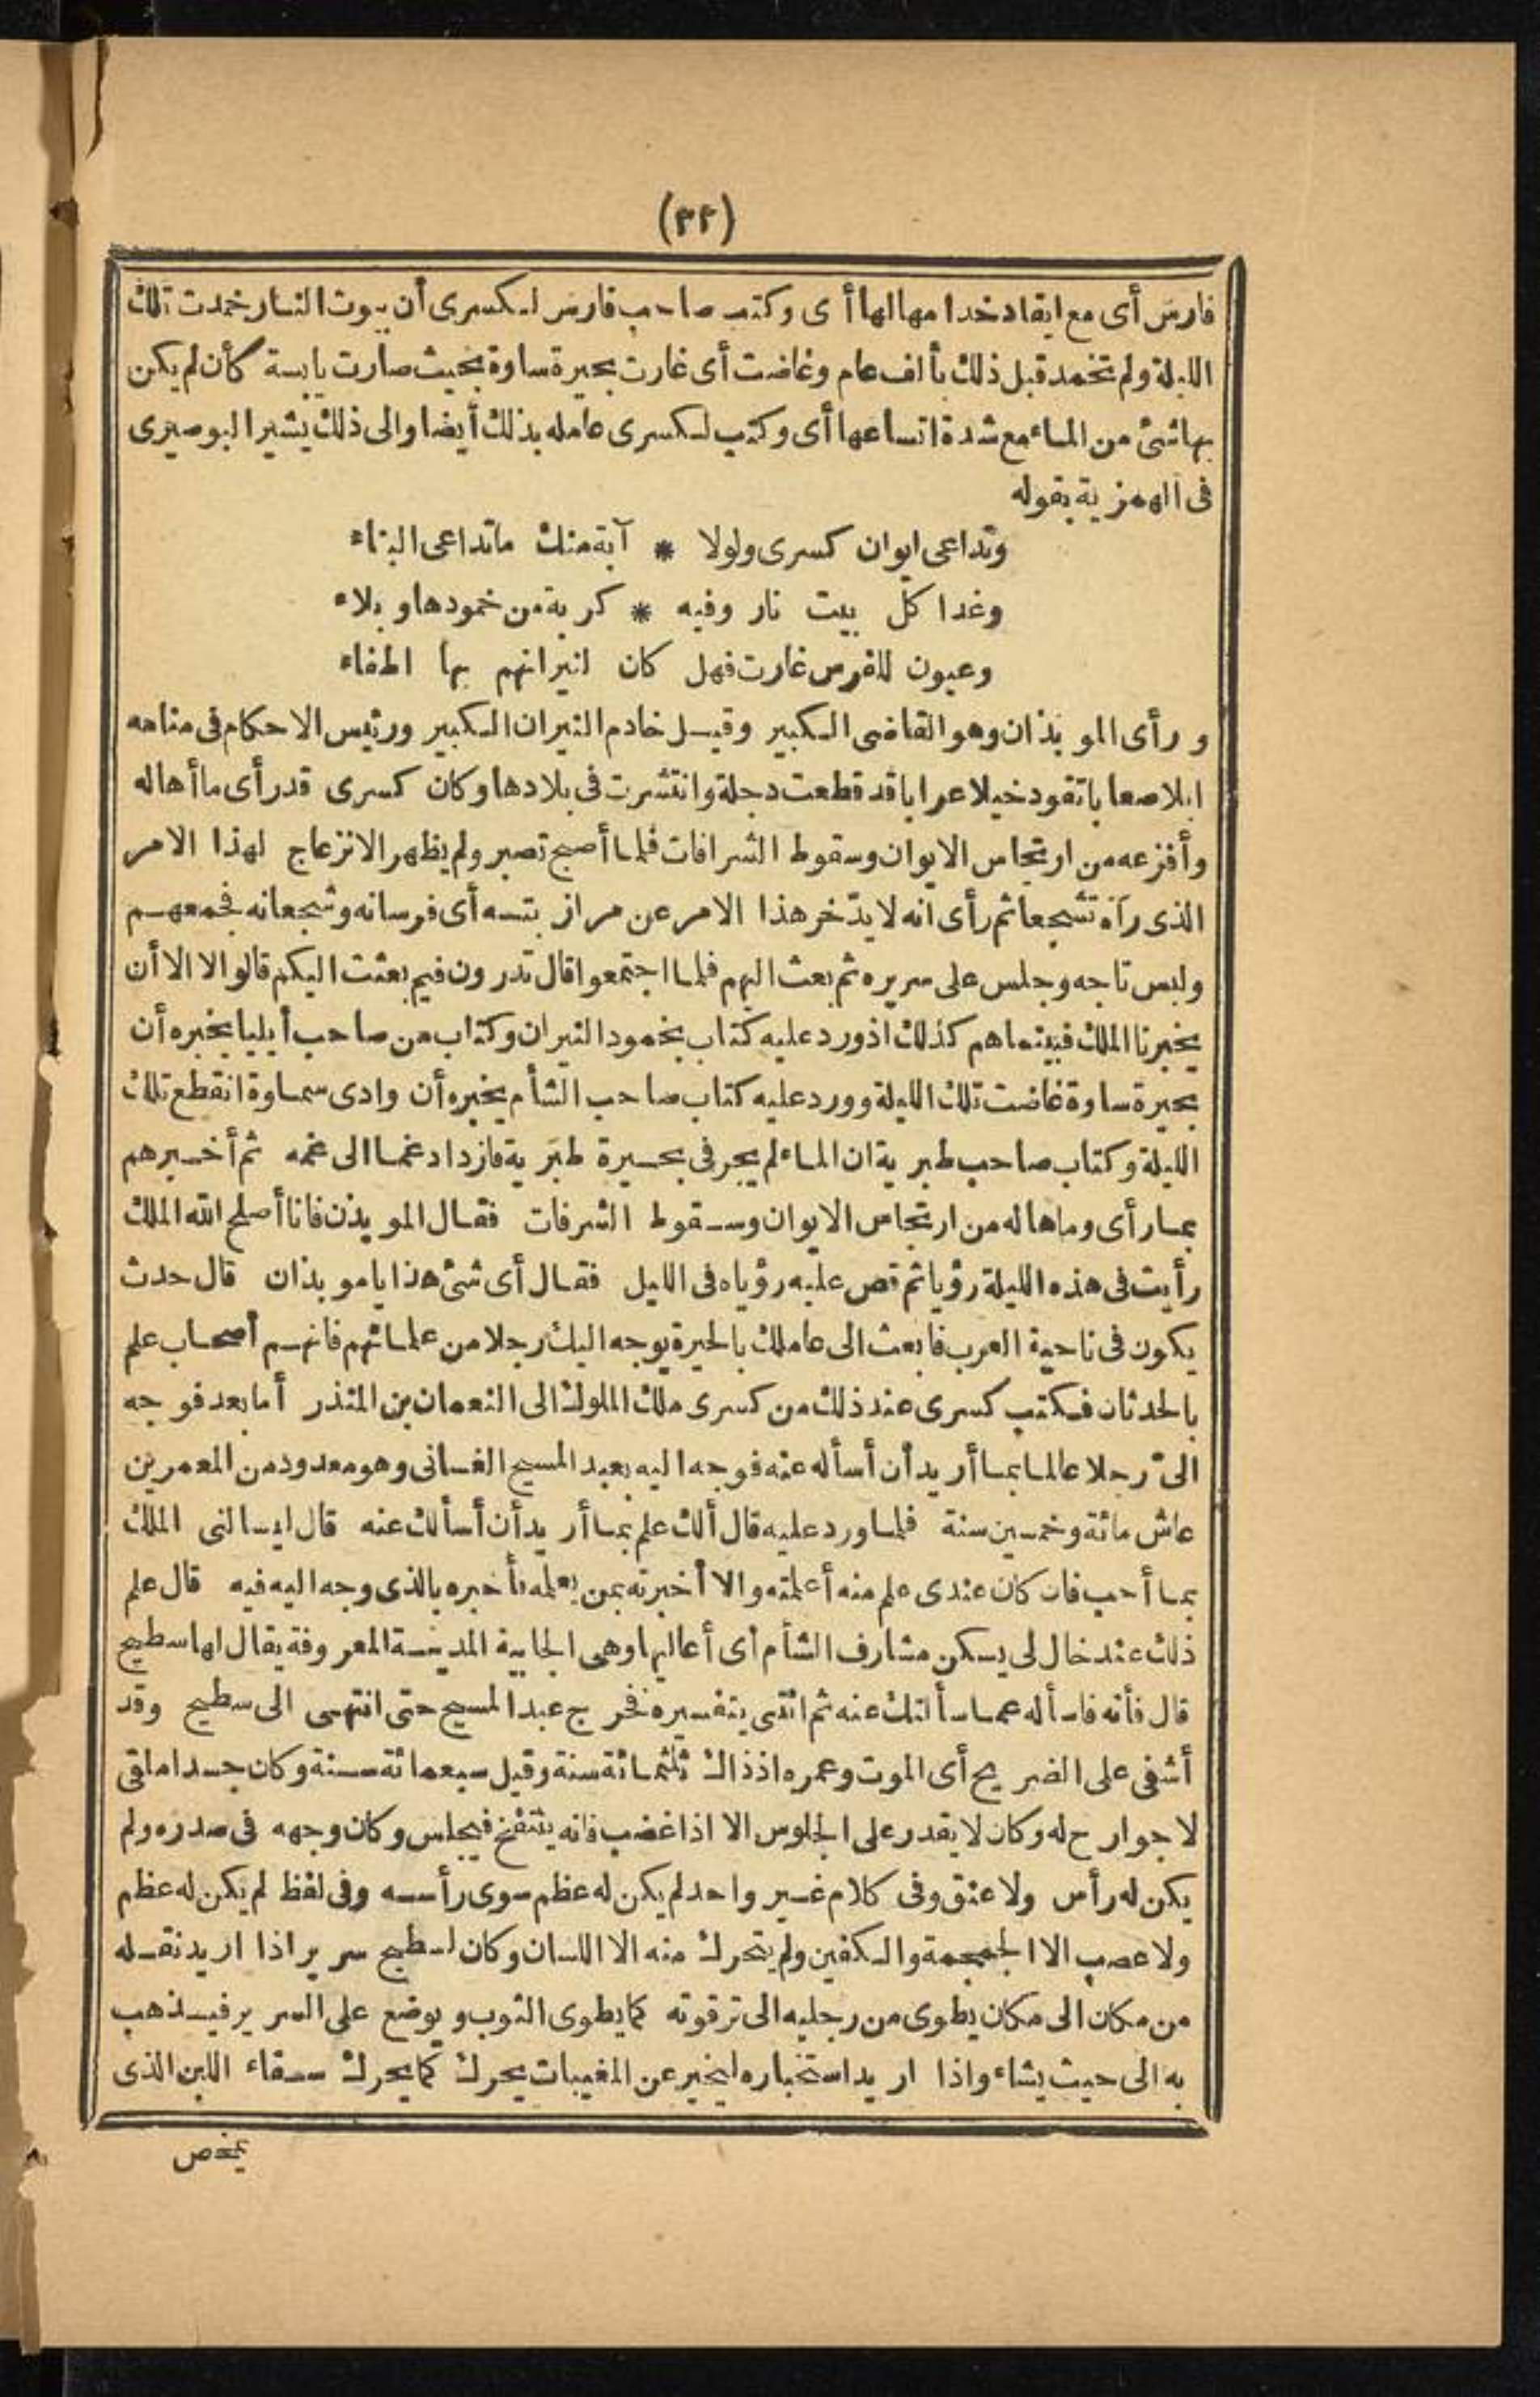 (٣٢)
فارس أى مع ايقاد خدامها لها أى وكتب صاحب فارس لكسرى أن بيوت النار خمدت تلك
الليلة ولم تخمد قبل ذلك بألف عام وغاضت أى غارت بحيرة ساوة بحيث صارت يابسة كأن لم يكن
بها شئ من الماء مع شدة اتساعها أى وكتب لكسرى عامله بذلك أيضا والى ذلك يشير البوصيرى
فى الهمزية بقوله
وتداعى ايوان كسرى ولولا * آية منك ماتداعى البناء
وغدا كل بيت نار وفيه * كربة من خمودها وبلاء
وعيون للفرس غارت فهل كان لنيرانهم بها اطفاء
ورأى الموبذان وهو القاضى الكبير وقيل خادم النيران الكبير ورئيس الاحكام فى منامه
ابلا صعابا تقود خيلا عرابا قد قطعت دجلة وانتشرت فى بلادها وكان كسرى قد رأى ما أهاله
وأفزعه من ارتجاس الايوان وسقوط الشرافات فلما أصبح تصبر ولم يظهر الانزعاج لهذا الامر
الذى رآه تشجعا ثم رأى انه لا يدّخر هذا الامر عن مرازبته أى فرسانه وشجعانه فجمعهم
ولبس تاجه وجلس على سريره ثم بعث اليهم فلما اجتمعوا قال تدرون فيم بعثت اليكم قالوا لا الا أن
يخبرنا الملك فبينما هم كذلك اذ ورد عليه كتاب بخمود النيران وكتاب من صاحب أيليا يخبره أن
بحيرة ساوة غاضت تلك الليلة وورد عليه كتاب صاحب الشأم يخبره أن وادى سماوة انقطع تلك
الليلة وكتاب صاحب طبرية ان الماء لم يجر فى بحيرة طبرية فازداد غما الى غمه ثم أخبرهم
بما رأى وما هاله من ارتجاس الايوان وسقوط الشرفات فقال الموبذن فانا أصلح الله الملك
رأيت فى هذه الليلة رؤيا ثم قص عليه رؤياه فى الليل فقال أى شئ هذا يا موبذان قال حدث
يكون فى ناحية العرب فابعث الى عاملك بالحيرة يوجه اليك رجلا من علمائهم فانهم أصحاب علم
بالحدثان فكتب كسرى عند ذلك من كسرى ملك الملوك الى النعمان بن المنذر أما بعد فوجه
الىّ رجلا عالما بما أريد أن أسأله عنه فوجه اليه بعبد المسيح الغسانى وهو معدود من المعمرين
عاش مائة وخمسين سنة فلما ورد عليه قال ألك علم بما أريد أن أسألك عنه قال ليسالنى الملك
بما أحب فان كان عندى علم منه أعلمته والا أخبرته بمن يعلمه فأخبره بالذى وجه اليه فيه قال علم
ذلك عند خال لى يسكن مشارف الشأم أى أعاليها وهى الجابية المدينة المعروفة يقال لها سطيح
قال فأته فاسأله عما سألتك عنه ثم ائتنى بتفسيره فخرج عبد المسيح حتى انتهى الى سطيح وقد
أشفى على الضريح أى الموت وعمره اذذاك ثلثمائة سنة وقيل سبعمائة سنة وكان جسدا ملقى
لا جوارح له وكان لا يقدر على الجلوس الا اذا غضب فانه ينتفخ فيجلس وكان وجهه فى صدره ولم
يكن له رأس ولا عنق وفى كلام غير واحد لم يكن له عظم سوى رأسه وفى لفظ لم يكن له عظم
ولا عصب الا الجمجمة والكفين ولم يتحرك منه الا اللسان وكان لسطيح سرير اذا اريد نقله
من مكان الى مكان يطوى من رجليه الى ترقوته كما يطوى الثوب ويوضع على السرير فيذهب
به الى حيث يشاء واذا اريد استخباره ليخبر عن المغيبات يحرك كما يحرك سقاء اللبن الذى
يمخض